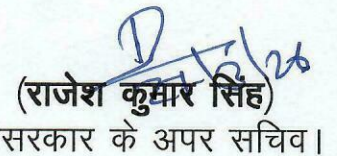 (राजेश कुमार सिंह)
सरकार के अपर सचिव।